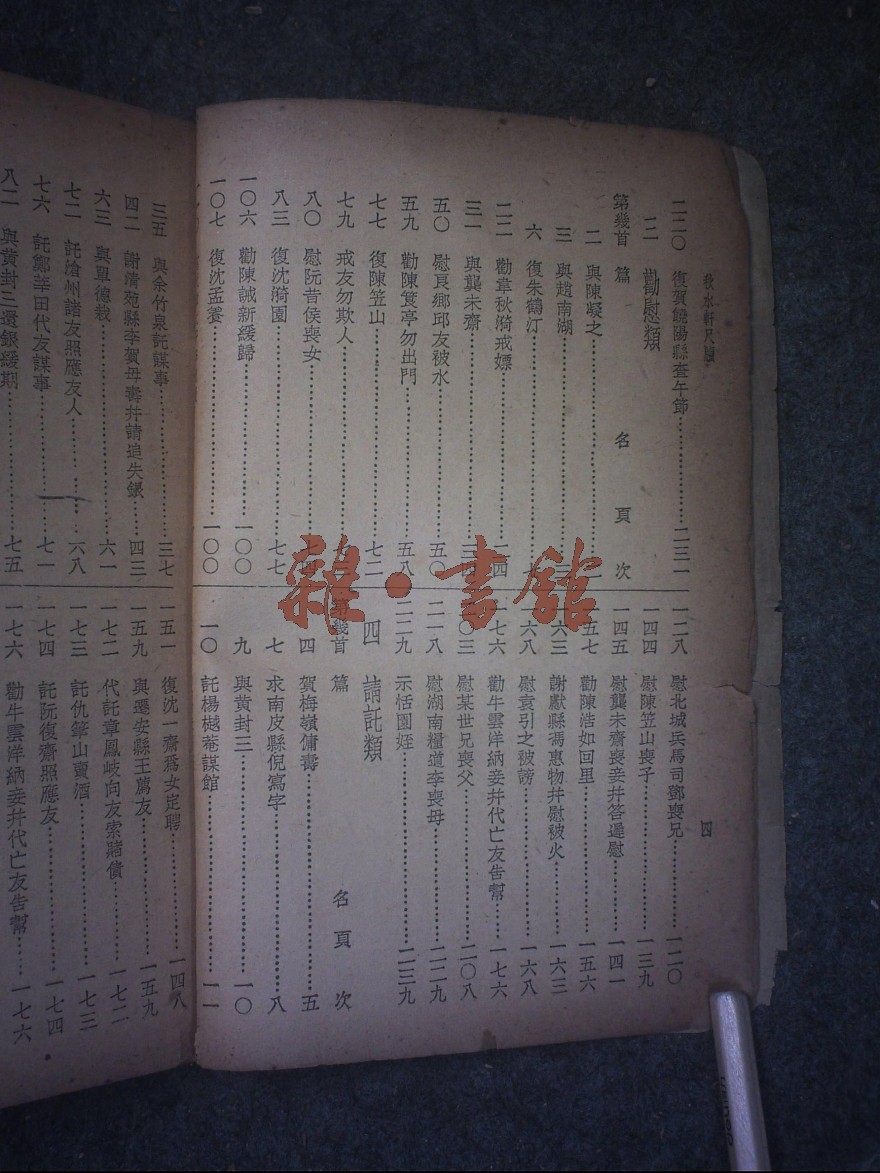 秋水軒尺牘
四
二二〇 復賀饒陽縣查午節 二三一
三 勸慰類
第幾首 篇名 頁次
二 與陳凝之 二
三 與趙南湖 三
六 復朱鶴汀 七
二二 勸章秋漪戒嫖 二四
三一 與龔未齋 三四
五〇 慰良鄉邱友被水 五〇
五九 勸陳篔亭勿出門 五八
七七 復陳笠山 七二
七九 戒友勿欺人 七三
八〇 慰阮昔侯喪女 七四
八三 復沈漪園 七七
一〇六 勸陳誠新緩歸 一〇〇
一〇七 復沈孟養 一〇〇
一二八 慰北城兵馬司鄧喪兄 一二〇
一四四 慰陳笠山喪子 一三九
一四五 慰龔未齋喪妾幷答遲慰 一四一
一五七 勸陳浩如回里 一五六
一六三 謝獻縣馮惠物幷慰被火 一六三
一六八 慰袁引之被謗 一六八
一七六 勸牛雲洋納妾幷代亡友告幫 一七六
二〇三 慰某世兄喪父 二〇八
二一八 慰湖南糧道李喪母 二二九
二二九 示恬園姪 二三九
四 請託類
第幾首 篇名 頁次
四 賀梅嶺傭壽 五
七 求南皮縣倪寫字 八
九 與黃封三 一〇
一〇 託楊樾菴謀館 一一
三五 與余竹泉託謀事 三七
四二 謝清苑縣李賀母壽幷請追失銀 四三
六三 與單德栽 六一
七二 託滄州諸友照應友人 六八
七六 託鄭莘田代友謀事 七一
八二 與黃封三還銀緩期 七五
一五一 復沈一齋爲女定聘 一四八
一五九 與遷安縣王薦友 一五九
一七二 代託章鳳岐向友索賭債 一七二
一七三 託仇筆山賣酒 一七三
一七四 託阮復齋照應友 一七四
一七六 勸牛雲洋納妾幷代亡友告幫 一七六
雜·書館